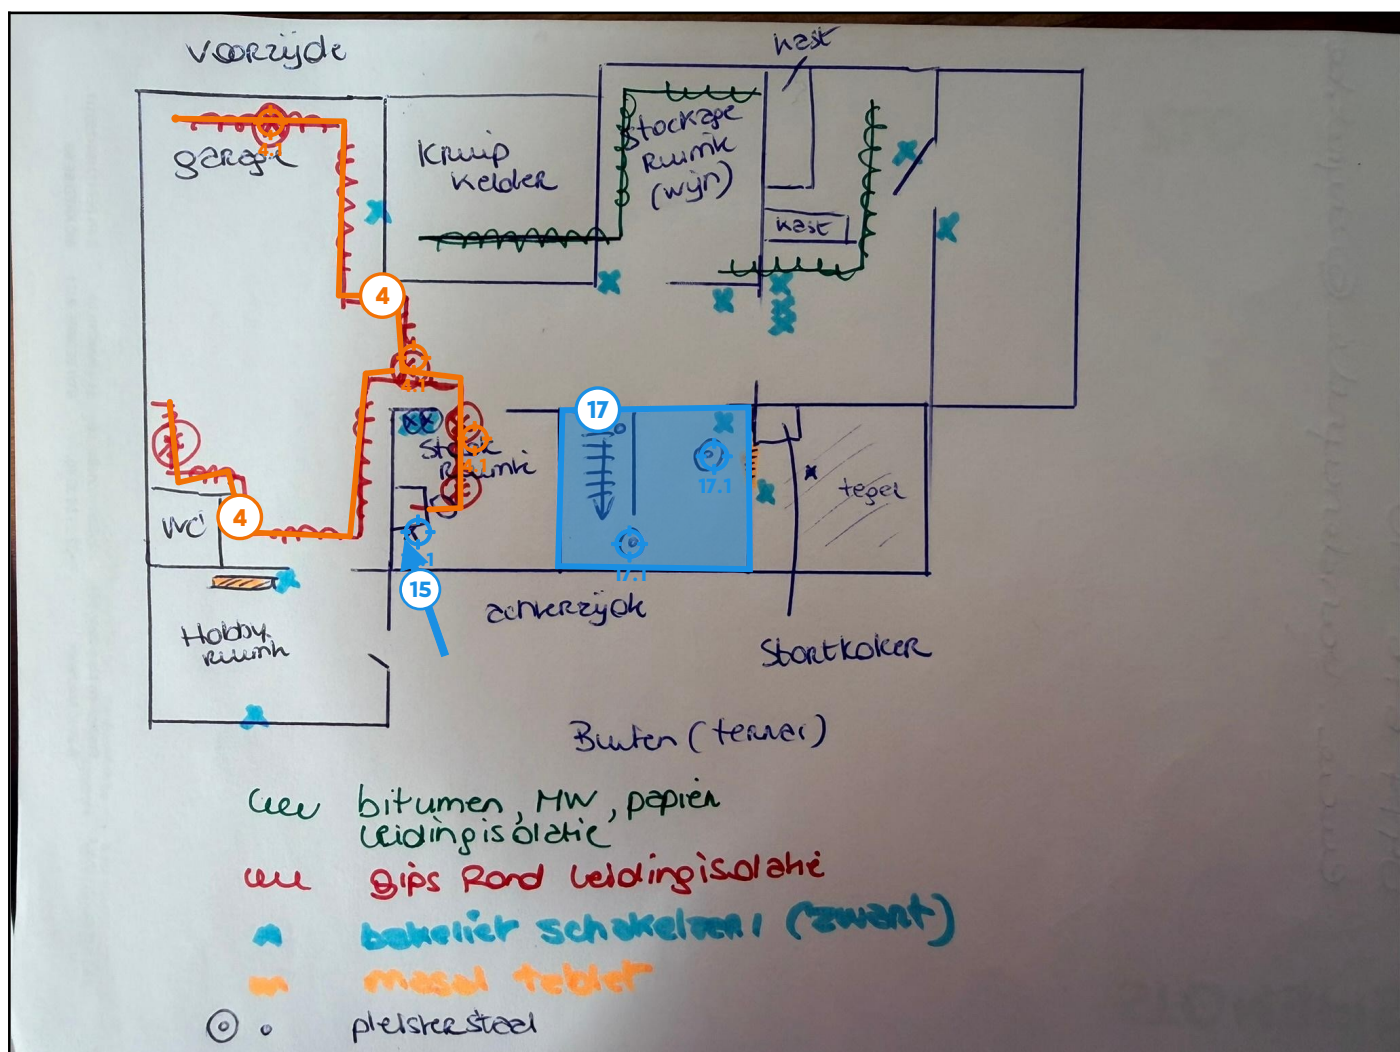 voorzijde
kast
garage
4.1
Kruip
kelder
Stockage
Ruimte
(wijn)
kast
4
4.1
17
Stook
Ruimte
4.1
17.1
tegel
WC
4
17.1
15
achterzijde
Hobby
ruimte
Stortkoker
Buiten (terras)
bitumen, MW, papier
leidingisolatie
gips Rond leidingisolatie
bakeliet schakelaar (zwart)
masal tablet
pleisterstaal